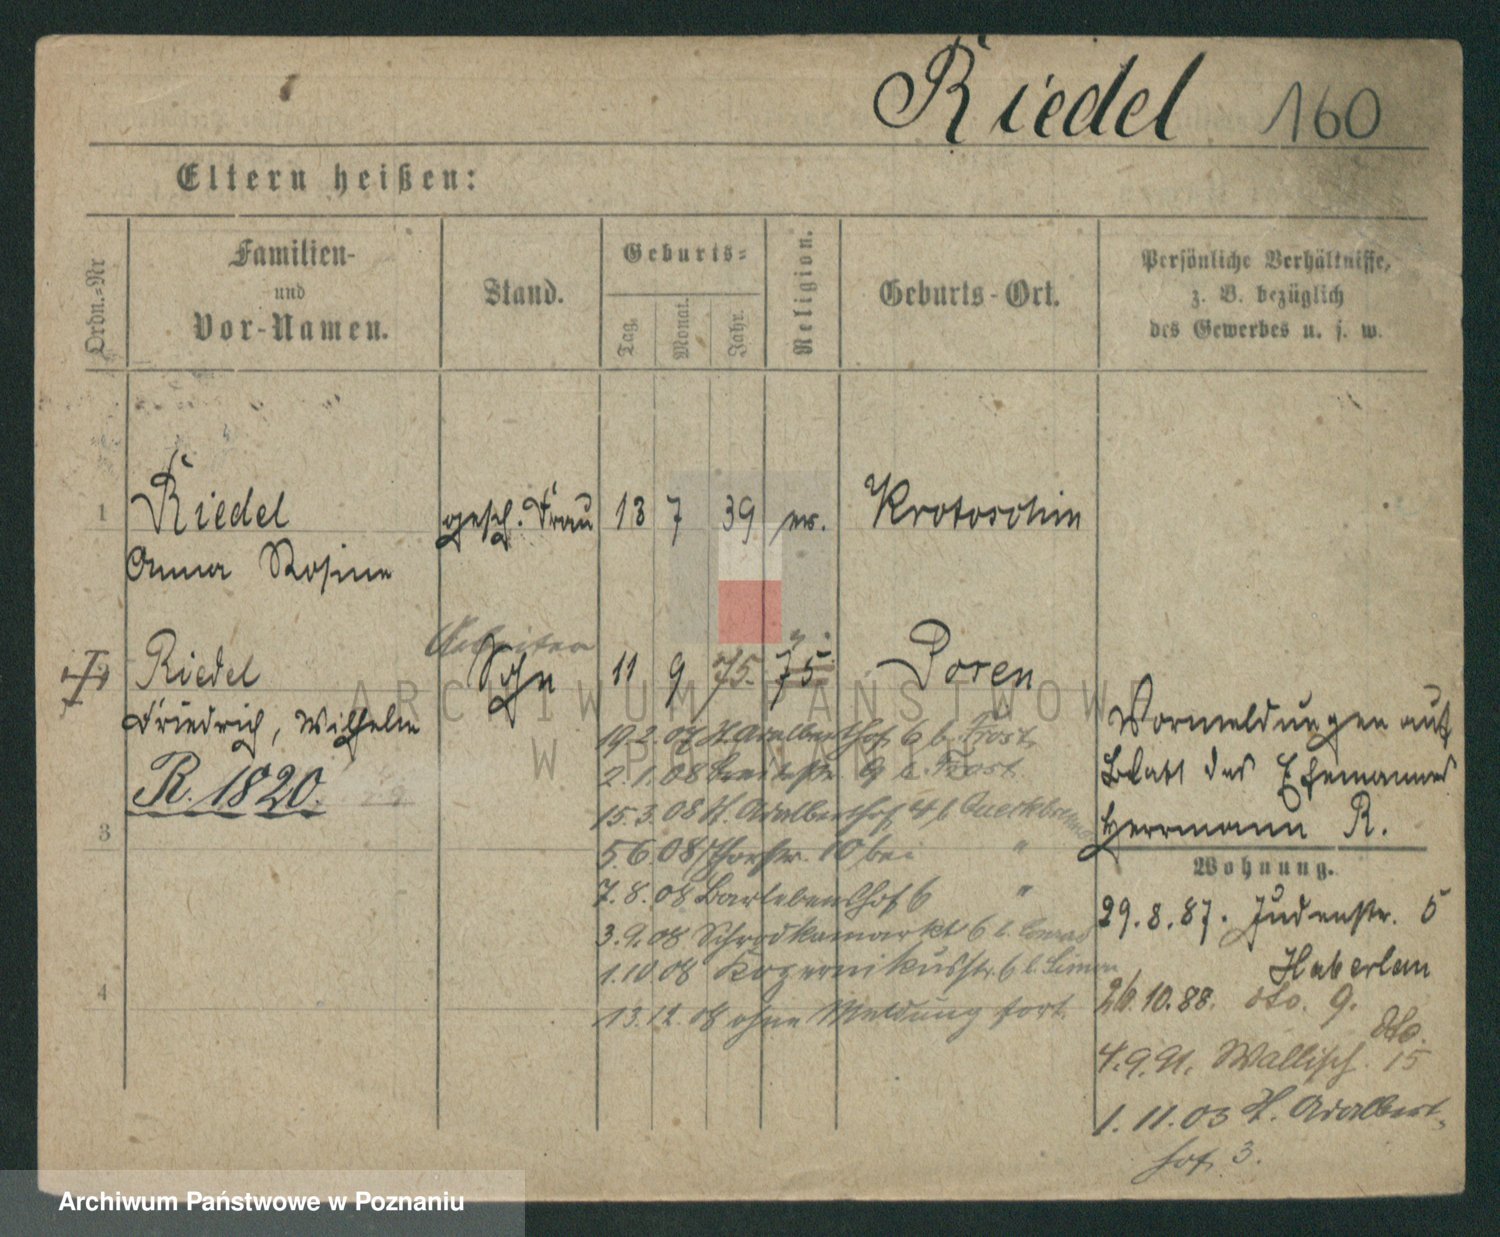 Riedel 160
Eltern heißen:
Ordn.-Nr
Familien-
und
Vor-Namen.
Stand.
Geburts-
Tag.
Monat.
Jahr.
Religion.
Geburts-Ort.
Persönliche Verhältnisse,
z. B. bezüglich
des Gewerbes u. s. w.
1 Riedel gesch. Frau 13 7 39 ev. Krotoschin
Anna Rosine
Arbeiter
2 Riedel Sohn 11 9 75. 75. Posen
Friedrich, Wilhelm
R. 1820.
Vormeldungen auf
Blatt des Ehemannes
Herrmann R.
19.2.07 St. Adalberthof 6 b. Frost
2.1.08 Breitestr. 9 b. Frost
15.3.08 St. Adalberthof 4 b.
3
5.6.08 10 bei "
7.8.08 Barlebenshof 6 "
3.9.08 Schrodkamarkt 6 b.
1.10.08 Kopernikusstr. 6 b. Simon
4
13.12.08 ohne Meldung fort.
Wohnung.
29.8.87. Judenstr. 5
Haberlan
26.10.88. dto. 9.
4.9.91. Wallisch. dto. 15
1.11.03 St. Adalbert-
hof. 3.
ARCHIWUM PAŃSTWOWE
W POZNANIU
Archiwum Państwowe w Poznaniu